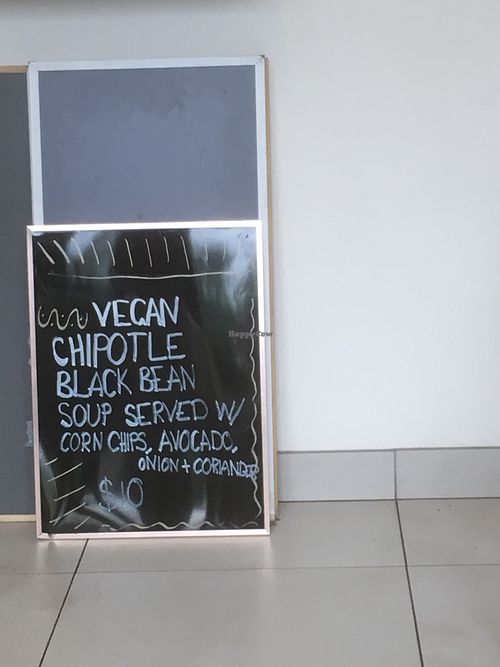 VEGAN
CHIPOTLE
BLACK BEAN
SOUP SERVED W/
CORN CHIPS, AVOCADO,
ONION + CORIANDER
$10
HappyCow